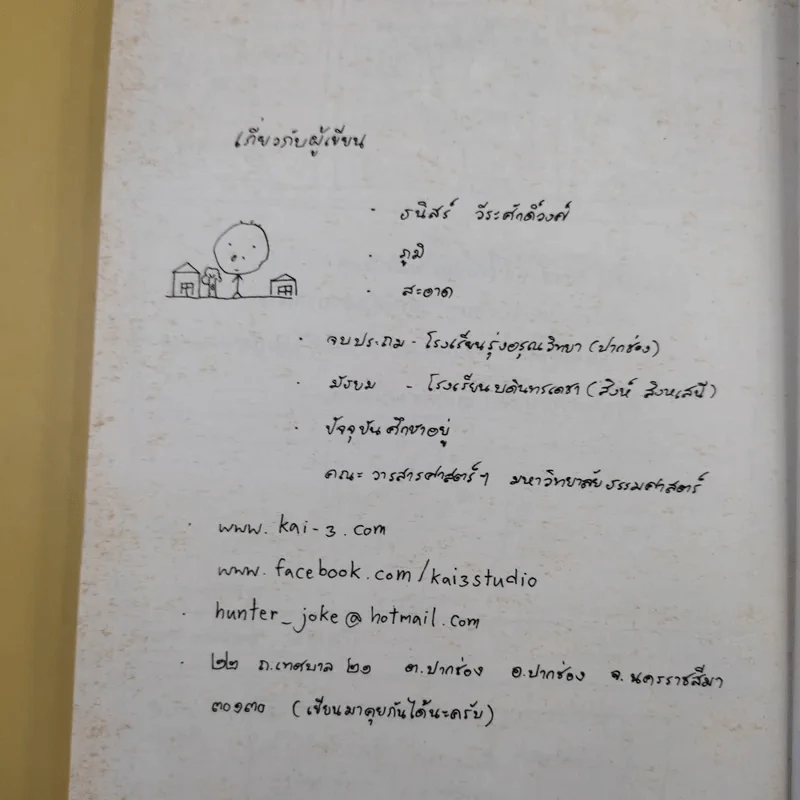 เกี่ยวกับผู้เขียน
· ธนิสร์ วีระศักดิ์วงศ์
· ภูมิ
· สะอาด
· จบประถม - โรงเรียนรุ่งอรุณวิทยา (ปากช่อง)
· มัธยม - โรงเรียนบดินทรเดชา (สิงห์ สิงหเสนี)
· ปัจจุบันศึกษาอยู่
คณะวารสารศาสตร์ฯ มหาวิทยาลัยธรรมศาสตร์
· www.kai-3.com
www.facebook.com/kai3studio
· hunter_joke@hotmail.com
· ๒๒ ถ.เทศบาล ๒๑ ต.ปากช่อง อ.ปากช่อง จ.นครราชสีมา
๓๐๑๓๐ (เขียนมาคุยกันได้นะครับ)